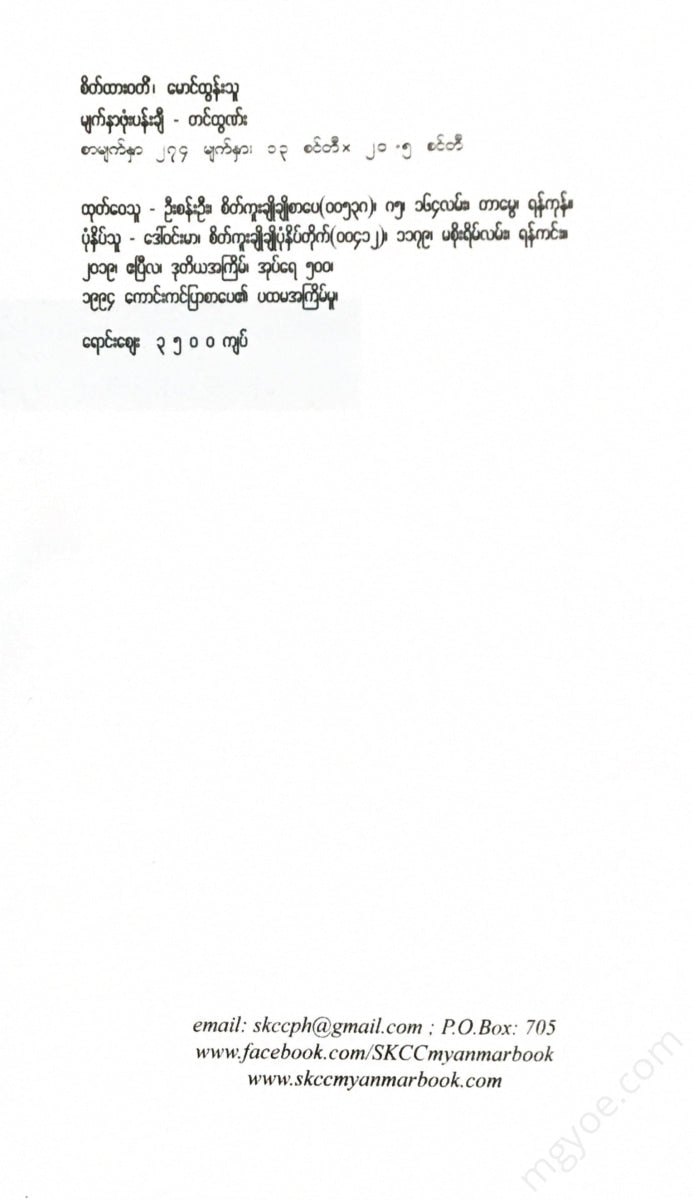 စိတ်ထားဝတီ၊ မောင်ထွန်းသူ
မျက်နှာဖုံးပန်းချီ - တင်ထွဏ်း
စာမျက်နှာ ၂၇၄ မျက်နှာ၊ ၁၃ စင်တီ× ၂၀ .၅ စင်တီ
ထုတ်ဝေသူ - ဦးစန်းဦး၊ စိတ်ကူးချိုချိုစာပေ(၀၀၅၃၈)၊ ၈၅၊ ၁၆၄လမ်း၊ တာမွေ၊ ရန်ကုန်။
ပုံနှိပ်သူ - ဒေါ်ဝင်းမာ၊ စိတ်ကူးချိုချိုပုံနှိပ်တိုက်(၀၀၄၁၂)၊ ၁၁၇၉၊ မစိုးရိမ်လမ်း၊ ရန်ကင်း။
၂၀၁၉၊ ဧပြီလ၊ ဒုတိယအကြိမ်၊ အုပ်ရေ ၅၀၀၊
၁၉၉၄ ကောင်းကင်ပြာစာပေ၏ ပထမအကြိမ်မူ၊
ရောင်းဈေး ၃ ၅ ၀ ၀ ကျပ်
email: skccph@gmail.com ; P.O.Box: 705
www.facebook.com/SKCCmyanmarbook
www.skccmyanmarbook.com
mgyoe.com